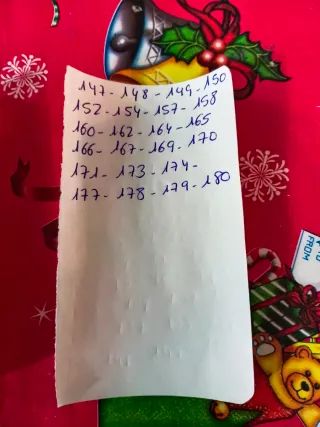 147- 148 - 149 - 150
152 - 154 - 157 - 158
160 - 162 - 164 - 165
166 - 167 - 169 - 170
171 - 173 - 174 -
177 - 178 - 179 - 180
FROM